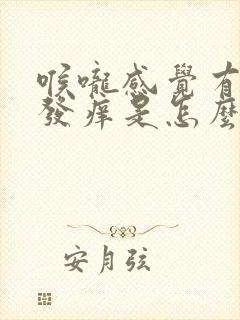 喉嚨感覺有
發痒是怎麼
安月弦